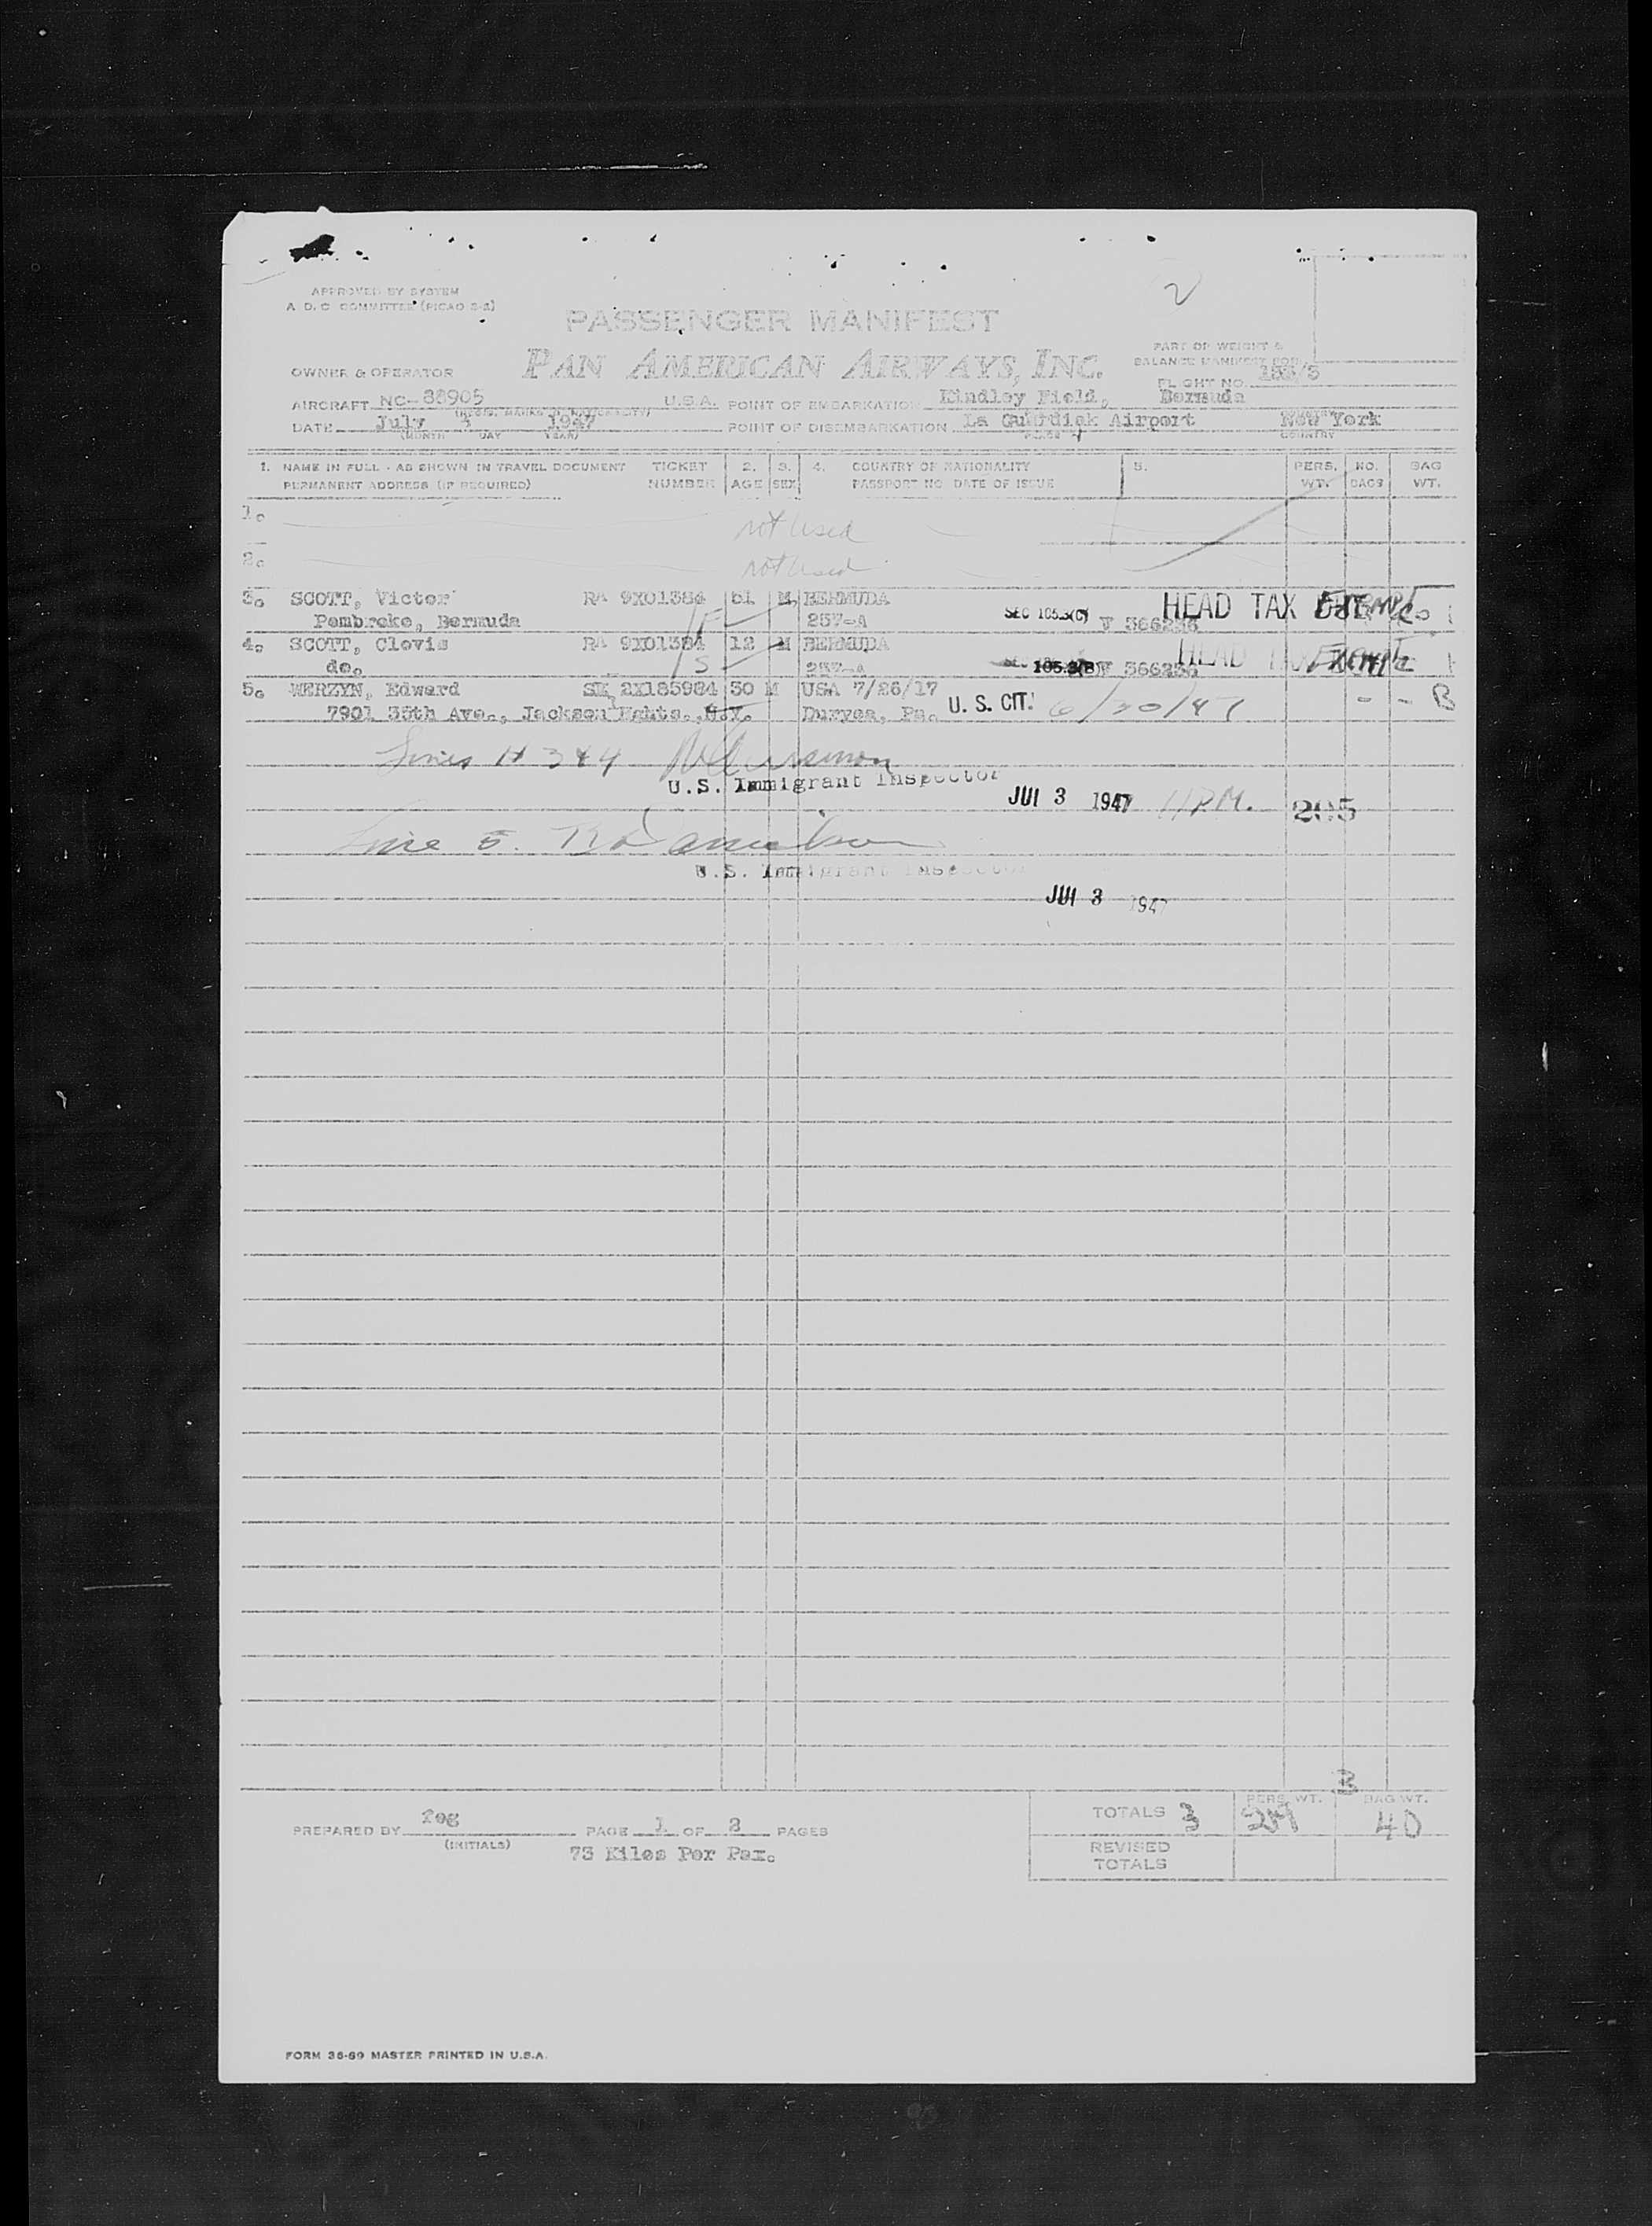 2
APPROVED BY SYSTEM
A. D. C. COMMITTEE (PICAO S-2)
PASSENGER MANIFEST
PART OF WEIGHT &
BALANCE MANIFEST FOR
OWNER & OPERATOR PAN AMERICAN AIRWAYS, INC.
FLIGHT NO.
AIRCRAFT NC-88905 U.S.A. POINT OF EMBARKATION Kindley Field, Bermuda
DATE July 3 1947 POINT OF DISEMBARKATION La Guardia Airport New York
(MONTH DAY YEAR) COUNTRY
1. NAME IN FULL - AS SHOWN IN TRAVEL DOCUMENT TICKET 2. 3. 4. COUNTRY OF NATIONALITY 5. PERS. NO. BAG
PERMANENT ADDRESS (IF REQUIRED) NUMBER AGE SEX PASSPORT NO. DATE OF ISSUE WT. BAGS WT.
1. not used
2. not used
3. SCOTT, Victor RA 9X01384 51 M BERMUDA SEC 105.3(C) HEAD TAX EXEMPT
Pembroke, Bermuda 257-A V 366236
4. SCOTT, Clovis RA 9X01384 12 M BERMUDA HEAD TAX EXEMPT
do. 257-A V 366236
5. WERZYN, Edward 2X185984 30 M USA 7/26/17 U. S. CIT. 6/30/47 - - B
7901 35th Ave., Jackson Hghts., N.Y. Duryea, Pa.
Lines # 3 & 4
U.S. Immigrant Inspector
JUl 3 1947 11 P.M. 205
Line 5.
U.S. Immigrant Inspector
JUl 3 1947
TOTALS 3 PERS. WT. 219 BAG WT. 40
PREPARED BY feg PAGE 1 OF 2 PAGES
(INITIALS) REVISED
73 Kilos Per Pax. TOTALS
FORM 36-69 MASTER PRINTED IN U.S.A.